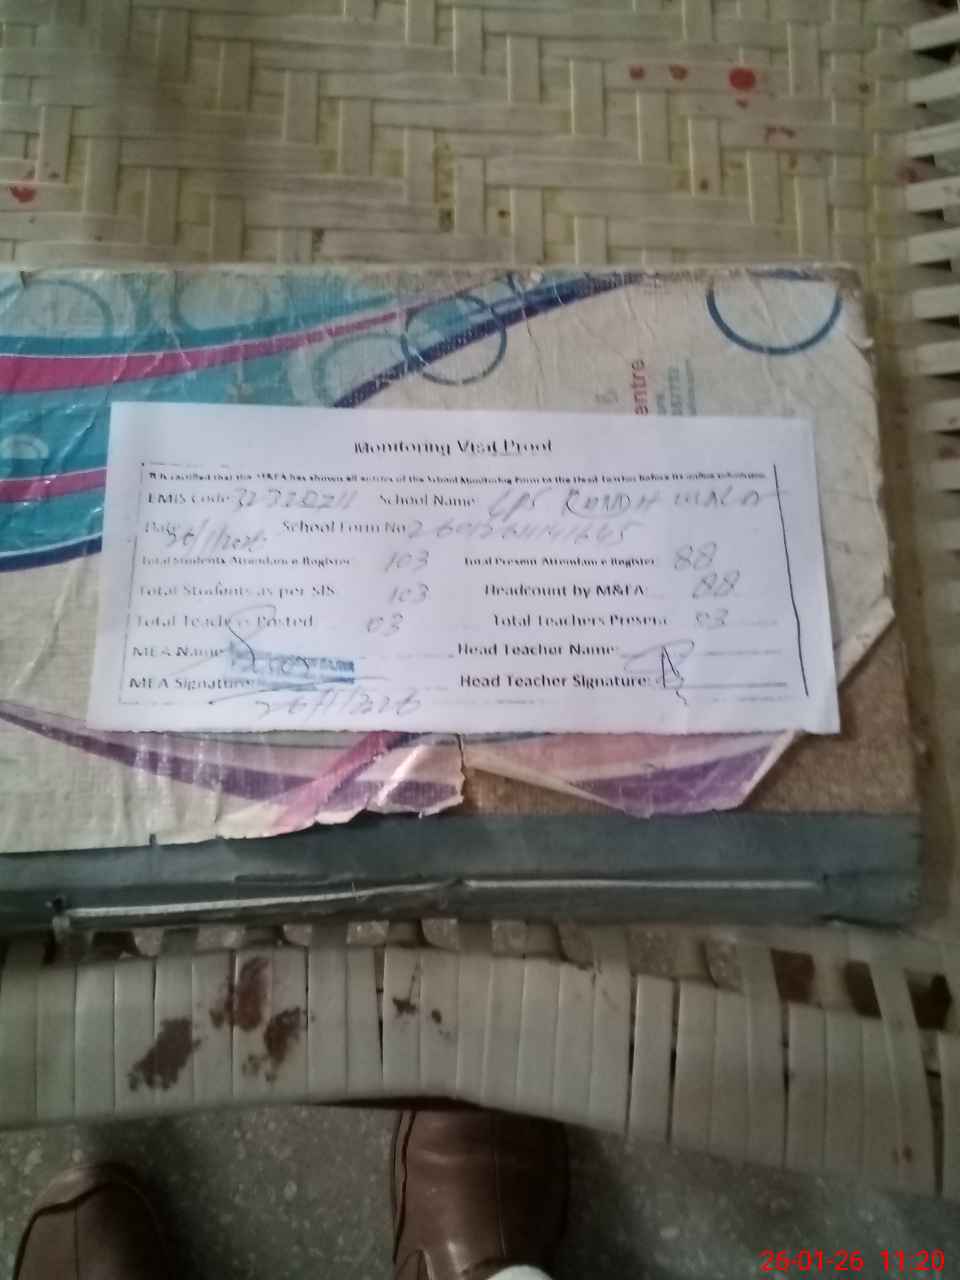 entre
Monitoring Visit Proof
It is certified that the M&EA has shown all entries of the School Monitoring Form to the Head Teacher before its online submission.
EMIS Code: School Name:
Date 26/1/2026 School Form No
Total Students Attendance Register: 103 Total Present Attendance Register: 88
Total Students as per SIS: 103 Headcount by M&EA: 88
Total Teachers Posted 03 Total Teachers Present 03
MEA Name: Head Teacher Name:
MEA Signature: Head Teacher Signature:
26/1/2026
26-01-26 11:20